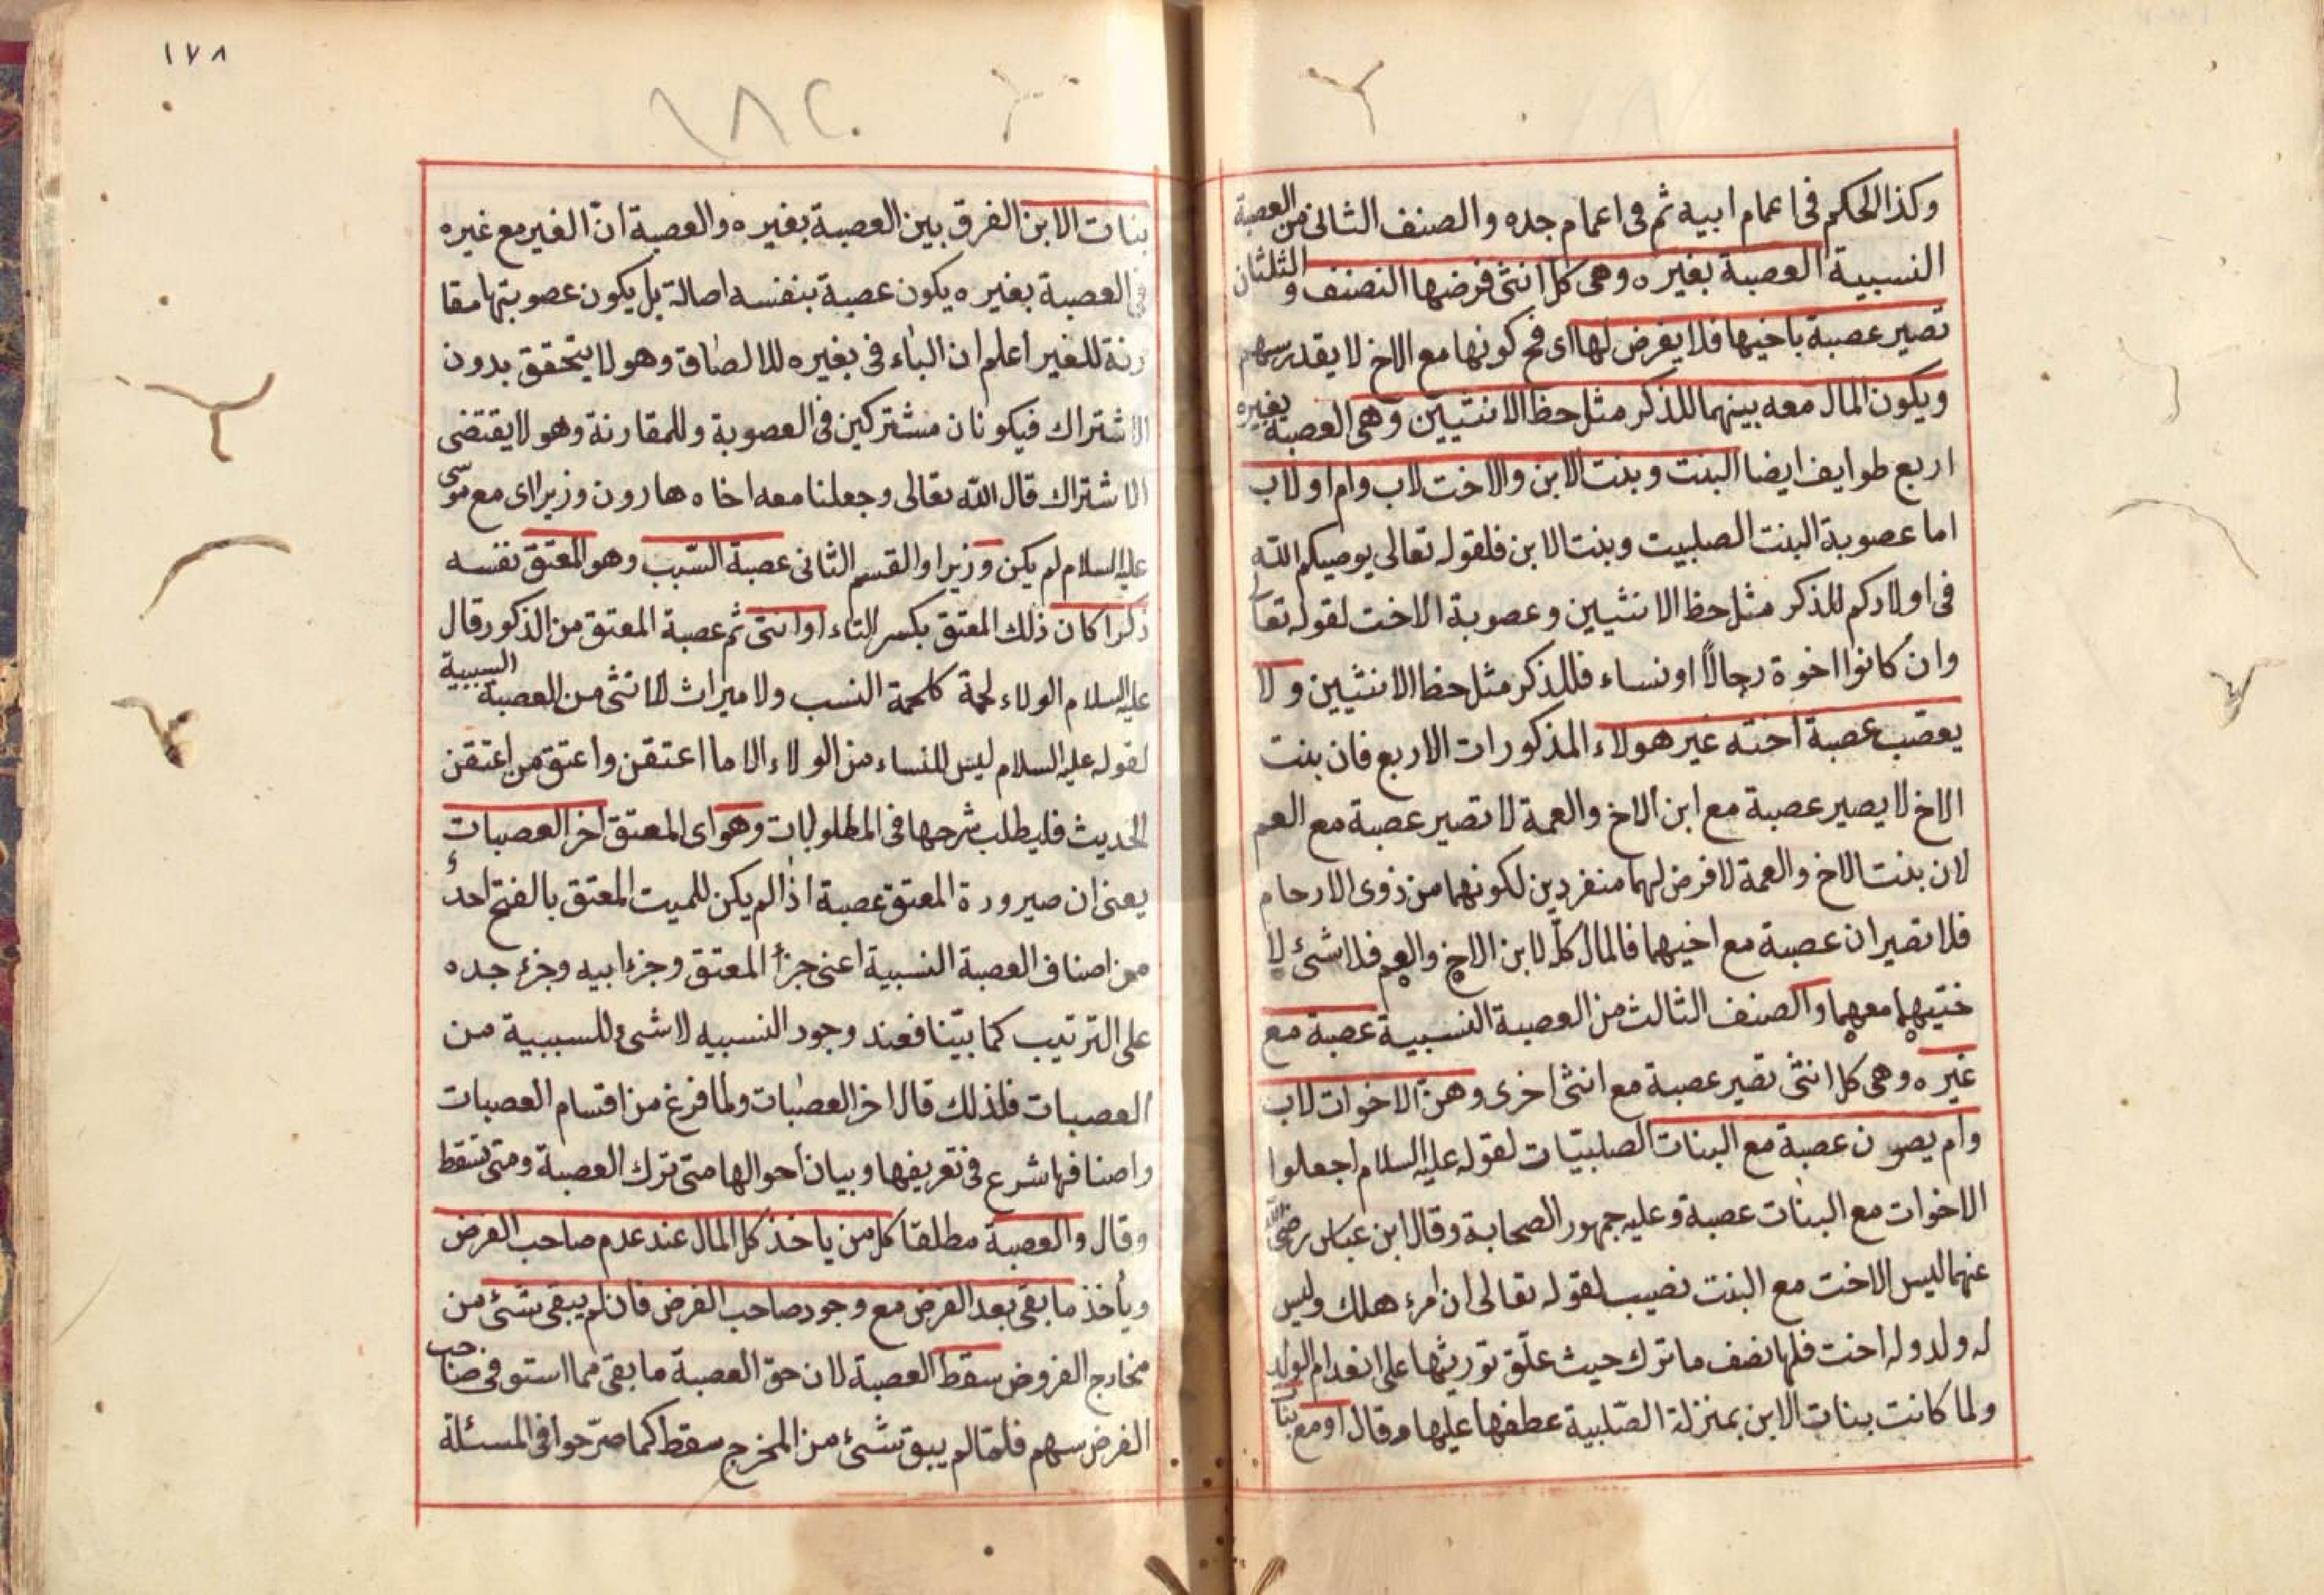 وكذا الحكم فى اعمام ابيه ثم فى اعمام جده والصنف الثانى من العصبة
النسبية العصبة بغيره وهى كل انثى فرضها النصف والثلثان
تصير عصبة باخيها فلا يفرض لها اى فح كونها مع الاخ لا يقدر سهم
ويكون المال معه بينهما للذكر مثل حظ الانثيين وهى العصبة بغيره
اربع طوايف ايضا البنت وبنت الابن والاخت لاب وام او لاب
اما عصوبة البنت الصلبيت وبنت الابن فلقوله تعالى يوصيكم الله
فى اولادكم للذكر مثل حظ الانثيين وعصوبة الاخت لقوله تعا
وان كانوا اخوة رجالاً او نساء فللذكر مثل حظ الانثيين ولا
يعصب عصبة اخته غير هولاء المذكورات الاربع فان بنت
الاخ لا يصير عصبة مع ابن الاخ والعمة لا تصير عصبة مع العم
لان بنت الاخ والعمة لا فرض لهما منفردين لكونهما من ذوى الارحام
فلا تصيران عصبة مع اخيهما فالمال كلّه لابن الاخ والعم فلا شئ لا
ختيهما معهما والصنف الثالث من العصبة النسبية عصبة مع
غيره وهى كل انثى تصير عصبة مع انثى اخرى وهنّ الاخوات لاب
وام يصرن عصبة مع البنات الصلبيّات لقوله عليه السلام اجعلوا
الاخوات مع البنات عصبة وعليه جمهور الصحابة وقال ابن عباس رضى الله
عنهما ليس الاخت مع البنت نصيب لقوله تعالى ان امرء هلك وليس
له ولد وله اخت فلها نصف ما ترك حيث علّق توريثها على انعدام الولد
ولما كانت بنات الابن بمنزلة الصّلبية عطفها عليها وقال او مع بنات
١٧٨
١٨٢
بنات الابن الفرق بين العصبة بغيره والعصبة انّ الغير مع غيره
فى العصبة بغيره يكون عصبة بنفسه اصالة بل يكون عصوبتها مقا
رنة للغير اعلم ان الباء فى بغيره للالصاق وهو لا يتحقق بدون
الاشتراك فيكونان مشتركين فى العصوبة وللمقارنة وهو لا يقتضى
الاشتراك قال الله تعالى وجعلنا معه اخاه هارون وزيرا اى مع موسى
عليه السلام لم يكن وزيرا والقسم الثانى عصبة السّبب وهو المعتق نفسه
ذكرا كان ذلك المعتق بكسر التاء او انثى ثم عصبة المعتق من الذكور قال
عليه السلام الولاء لحمة كلحمة النسب ولا ميراث لانثى من العصبة السببية
لقوله عليه السلام ليس للنساء من الولاء الا ما اعتقن واعتق من اعتقن
الحديث فليطلب شرحها فى المطلولات وهو اى المعتق اخر العصبات
يعنى ان صيرورة المعتق عصبة اذا لم يكن للميت المعتق بالفتح احد
من اصناف العصبة النسبية اعنى جزأ المعتق وجزء ابيه وجزء جده
على الترتيب كما بيّنا فعند وجود النسبيه لا شئ للسببية من
العصبات فلذلك قال اخر العصبات ولما فرغ من اقسام العصبات
واصنافها شرع فى تعريفها وبيان احوالها متى ترك العصبة ومتى تسقط
وقال والعصبة مطلقا كل من ياخذ كل المال عند عدم صاحب الفرض
ويأخذ ما بقى بعد الفرض مع وجود صاحب الفرض فان لم يبقى شئ من
مخارج الفروض سقط العصبة لان حقّ العصبة ما بقى مما استوفى صاحب
الفرض سهم فلمّا لم يبق شئ من المخرج سقط كما صرّحوا فى المسئلة